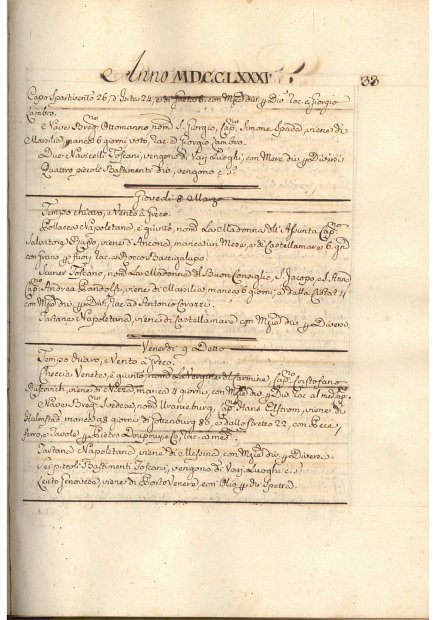 Anno MDCCLXXXI. 38
Capo Spartivento 26, d'Ivica 24, e di Gaeta 8, con Mzie div. p Div. rac. a Giorgio
Zambro.
Nave Breg. Ottomanno nom. S. Giorgio, Cap. Simone Spada, viene di
Marsilia, manca 6 giorni voto, rac. a Giorgio Zambro.
Due Navicelli Toscani, vengono di Varj Luoghi, con Merc. div. p Diversi
Quattro piccoli Bastimenti div. vengono c. s.
Giovedi 8 Marzo
Tempo chiaro, e Vento à Greco.
Pollacca Napoletana, è giunto, nom. La Madonna dell'Assunta Cap.no
Salvatore, viene d'Ancona, manca un Mese, e di Castellamare 6. gni
con grano p fuori rac. a Rocco Bacigalupo.
Liuner Toscano, nom. La Madonna di Buon Consiglio, S. Jacopo, e S. Anna
Cap.no Andrea Pandolfi, viene di Marsilia, manca 6 giorni, e dalla 11
con Mzie div. p Div. rac. a Antonio
Tartana Napoletana, viene di Castellamare con Mzie div. p Diversi
Venerdi 9 Detto
Tempo chiaro, e Vento à Greco.
Checcia Veneta, è giunto, nom. La Vergine del Carmine, Cap.no Cristofano
viene di manca 4 giorni, con Mzie div. p Div. rac. al med. Cap.
Nave Breg. Svedese, nom. Uraneburg, Cap. Hans Elfstrom, viene di
manca 98 giorni, di Gottenburg 86, e dallo Stretto 22, con Pece
ferro, e Tavole p Pietro e C. rac. a med.
Tartana Napoletana, viene di Messina con Mzie div. p Diversi
Sei piccoli Bastimenti Toscani, vengono da Varj Luoghi c. s.
Leuto Genovese, viene di Porto Venere, con Olio p